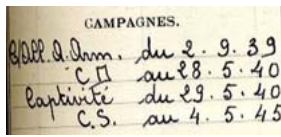 CAMPAGNES.
C/All. A. Arm. du 2.9.39
C D au 28.5.40
Captivité du 29.5.40
C.S. au 4.5.45